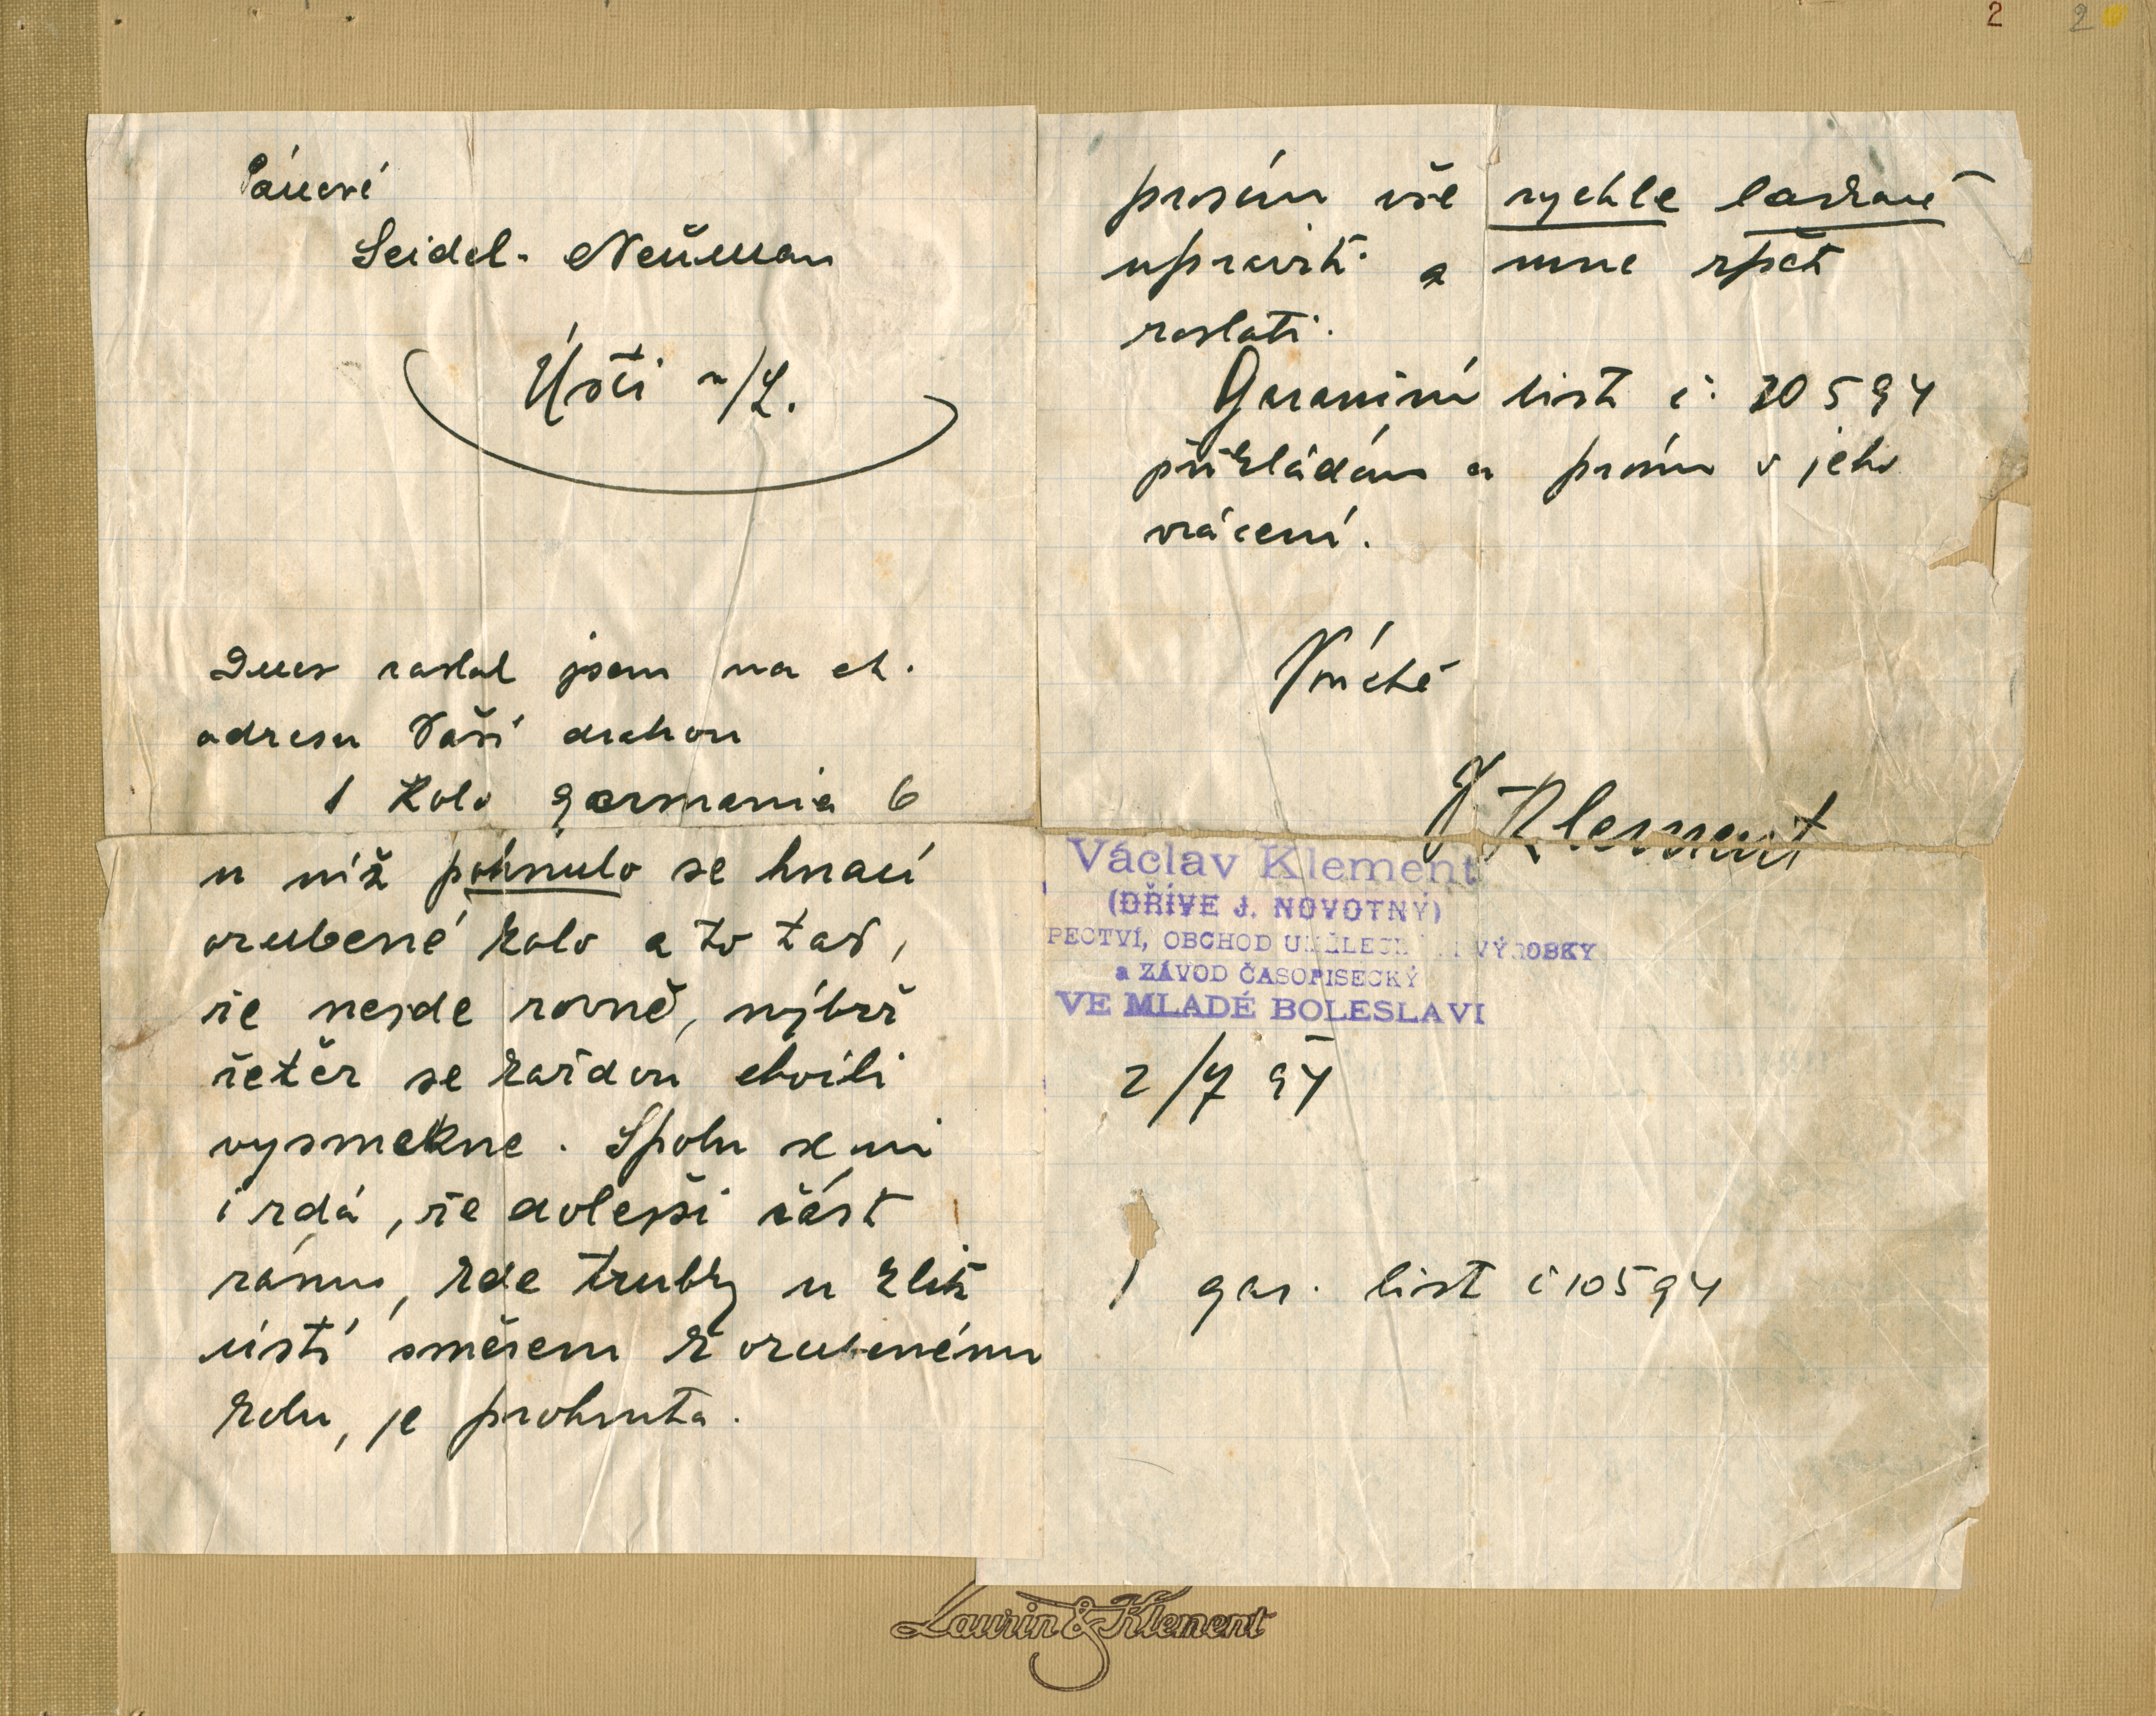 2
2
Pánové
Seidel - Neüman
Ústí n/L.
Dnes zaslal jsem na ct.
adresu Vaši drahou
1 Kolo germania 6
u níž pohnulo se hnací
ozubené kolo a to tak,
že nejde rovně, nýbrž
řetěz se každou chvíli
vysmekne. Spolu se mi
i zdá, že dolejší část
rámu, kde trubky u klik
ústí směrem k ozubenému
kolu, je prohnuta.
prosím vše rychle laskavě
upraviti a mne zpět
zaslati.
Garanční list č: 10594
přikládám a prosím o jeho
vrácení.
V úctě
V Klement
Václav Klement
(DŘÍVE J. NOVOTNÝ)
PECTVÍ, OBCHOD VÝROBKY
a ZÁVOD ČASOPISECKÝ
VE MLADÉ BOLESLAVI
2/7 94
1 gar. list č 10594
Laurin & Klement